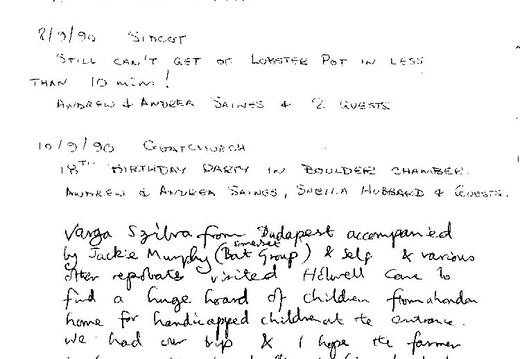 8/9/90 SIDCOT
STILL CAN'T GET OF LOBSTER POT IN LESS
THAN 10 mins!
ANDREW & ANDREA SAINES & 2 GUESTS
10/9/90 GOATCHURCH
18TH BIRTHDAY PARTY IN BOULDER CHAMBER.
ANDREW & ANDREA SAINES, SHEILA HUBBARD & GUESTS.
Varga Szilva from Budapest accompanied
by Jackie Murphy (Somerset Bat Group) & self & various
other reprobates visited Hilwell Cave to
find a huge hoard of children from a london
home for handicapped children at the entrance.
We had our trip & I hope the farmer